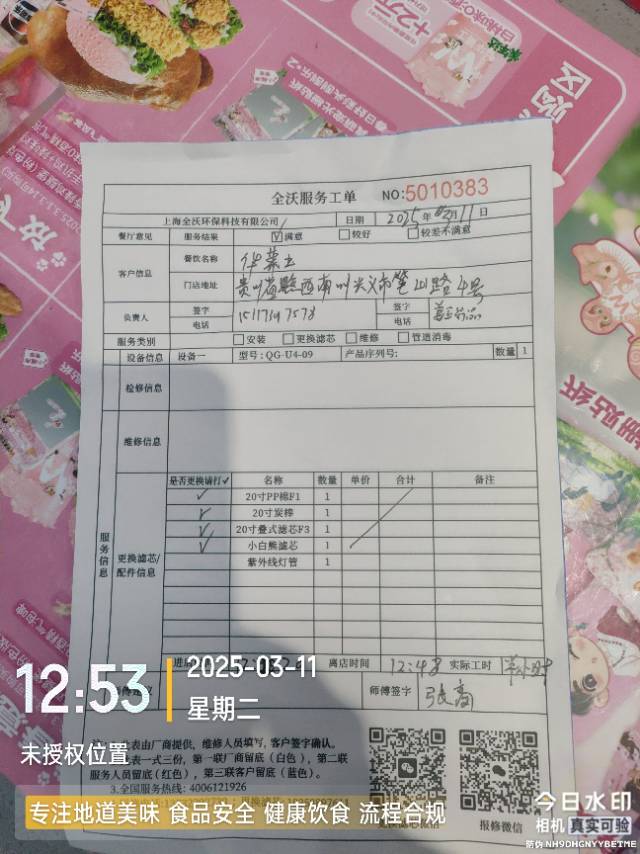 全沃服务工单 NO:5010383
上海全沃环保科技有限公司 日期 2025年03月11日
餐厅意见 服务结果 ☑满意 □较好 □较差不满意
客户信息 餐饮名称 华莱士
门店地址 贵州省黔西南州兴义市笔山路4号
负责人 签字 签字
电话 电话
服务类别 □安装 □更换滤芯 □维修 □管道消毒
设备信息 设备一 型号:QG-U4-09 产品序列号: 数量 1
检修信息
维修信息
服务信息
更换滤芯/配件信息
是否更换请打✓ 名称 数量 单价 合计 备注
✓ 20寸PP棉F1 1
✓ 20寸炭棒 1
✓ 20寸叠式滤芯F3 1
✓ 小白熊滤芯 1
紫外线灯管 1
离店时间 12:48 实际工时
师傅签字
表由厂商提供，维修人员填写，客户签字确认。
表一式三份，第一联厂商留底（白色），第二联
服务人员留底（红色），第三联客户留底（蓝色）。
3.全国服务热线：4006121926
报修微信
12:53
2025-03-11
星期二
未授权位置
专注地道美味 食品安全 健康饮食 流程合规
今日水印
相机 真实可验
防伪 NH9DHGNYYBETME